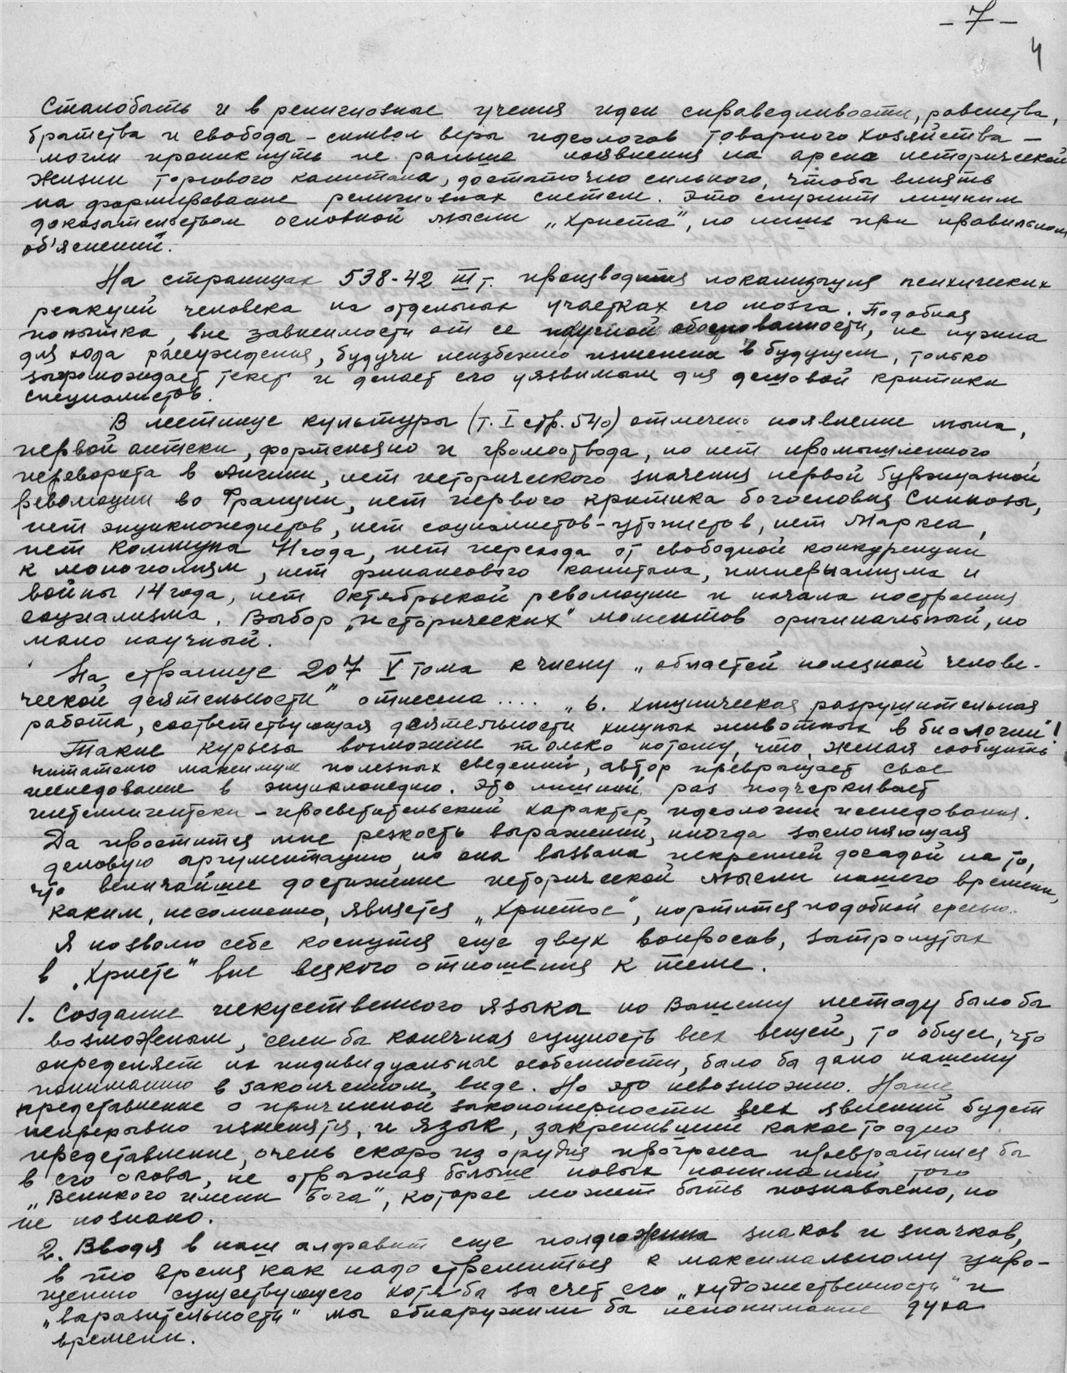 – 7 –
4
Сталобыть и в религиозные учения идеи справедливости, равенства,
братства и свободы – символ веры идеологов товарного хозяйства –
могли проникнуть не раньше появления на арене исторической
жизни торгового капитала, достаточно сильного, чтобы влиять
на формирование религиозных систем. Это служит лишним
доказательством основной мысли „Христа", но лишь при правильном
об'яснении.
На страницах 538-42 III т. производится локализация психических
реакций человека на отдельных участках его мозга. Подобная
попытка, вне зависимости от ее научной обоснованности, не нужна
для хода рассуждения, будучи неизбежно изменена в будущем, только
загромождает текст и делает его уязвимым для деловой критики
специалистов.
В лестнице культуры (т. I стр. 540) отмечено появление мыла,
первой аптеки, фортепиано и громоотвода, но нет промышленного
переворота в Англии, нет исторического значения первой буржуазной
революции во Франции, нет первого критика богословия Спинозы,
нет энциклопедистов, нет социалистов-утопистов, нет Маркса,
нет Коммуны 71 года, нет перехода от свободной конкуренции
к монополиям, нет финансового капитала, империализма и
войны 14 года, нет Октябрьской революции и начала построения
социализма. Выбор „исторических" моментов оригинальный, но
мало научный.
На странице 207 V тома к числу „областей полезной челове-
ческой деятельности" отнесена .... „6. хищническая разрушительная
работа, соответствующая деятельности хищных животных в биологии"!
Такие курьезы возможны только потому, что, желая сообщить
читателю максимум полезных сведений, автор превращает свое
исследование в энциклопедию. Это лишний раз подчеркивает
интеллигентски-просветительский характер идеологии исследования.
Да простится мне резкость выражений, иногда заслоняющая
деловую аргументацию, но она вызвана искренней досадой на то,
что величайшее достижение исторической мысли нашего времени,
каким, несомненно, является „Христос", портится подобной ересью.
Я позволю себе коснуться еще двух вопросов, затронутых
в „Христе" вне всякого отношения к теме.
1. Создание искусственного языка по Вашему методу было бы
возможным, если бы конечная сущность всех вещей, то общее, что
определяет их индивидуальные особенности, было бы дано нашему
пониманию в законченном виде. Но это невозможно. Наше
представление о причинной закономерности всех явлений будет
непрерывно изменяться, и язык, закрепивший какое то одно
представление, очень скоро из орудия прогресса превратился бы
в его оковы, не отражая больше новых пониманий того
„Великого имени Бога", которое может быть познаваемо, но
не познано.
2. Вводя в наш алфавит еще полдюжины знаков и значков,
в то время как надо стремиться к максимальному упро-
щению существующего хотя бы за счет его „художественности" и
„выразительности" мы обнаружили бы непонимание духа
времени.